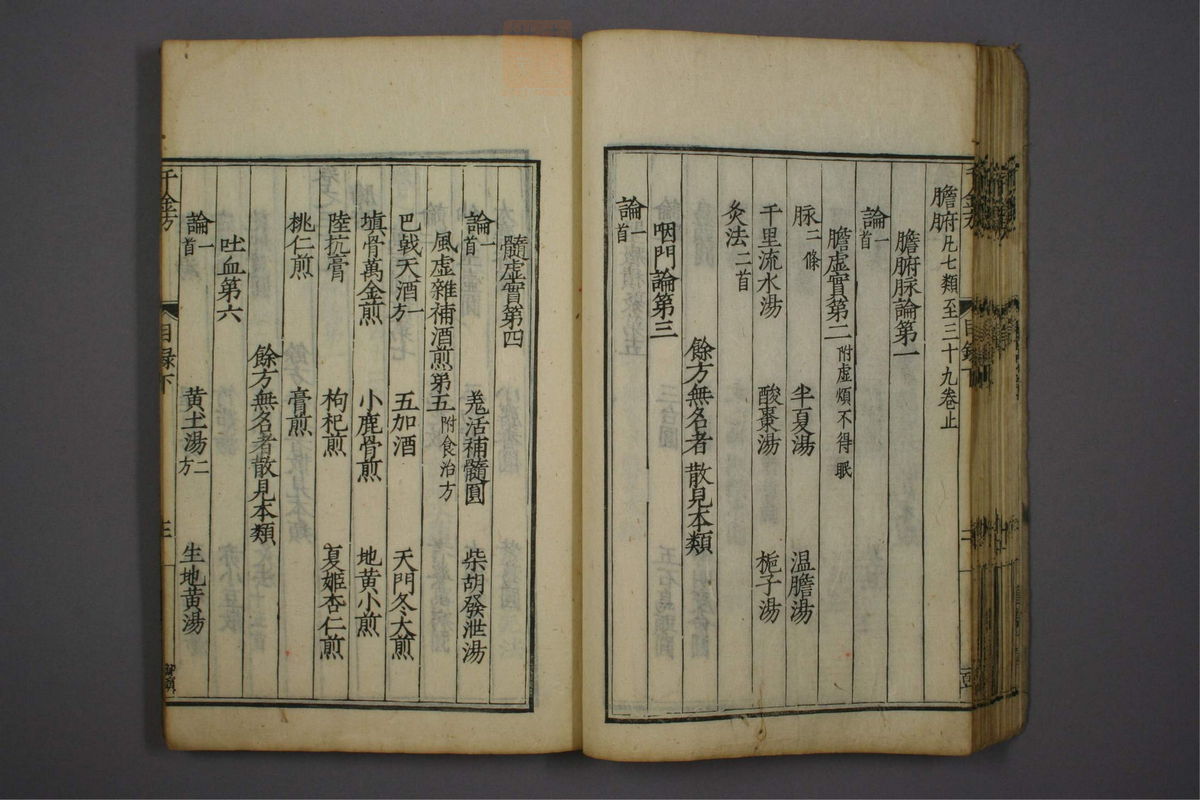 膽府凡七類至三十九卷止
膽腑
膽腑脉論第一
論一首
膽虛實第二附虛煩不得眠
脉二條 半夏湯 温膽湯
千里流水湯 酸棗湯 梔子湯
灸法二首
餘方無名者散見本類
咽門論第三
論一首
髓虛實第四
論一首 羗活補髓圓 柴胡發泄湯
風虛雜補酒煎第五附食治方
巴戟天酒方一 五加酒 天門冬大煎
填骨萬金煎 小鹿骨煎 地黄小煎
陸抗膏 枸杞煎 夏姬杏仁煎
桃仁煎 膏煎
餘方無名者散見本類
吐血第六
論一首 黄土湯二方 生地黄湯
千金方 目録下